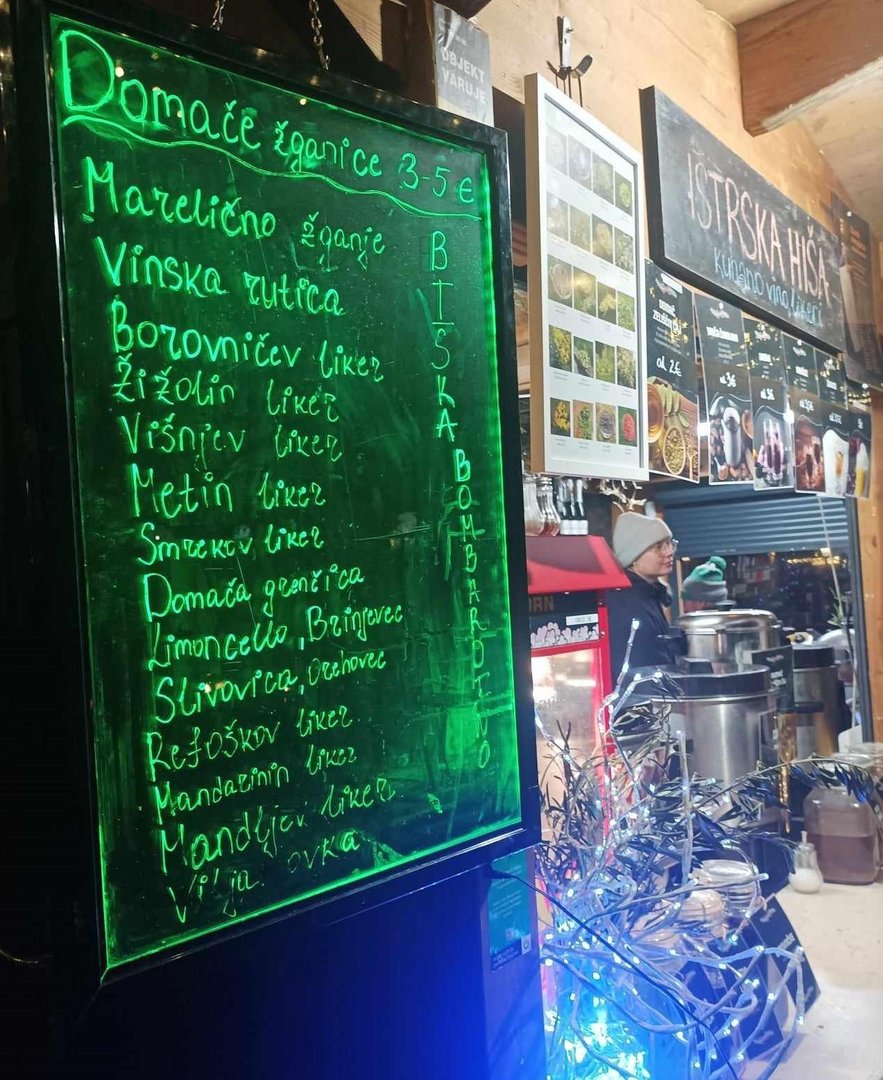 Domače žganice 3-5 €
Marelično žganje
Vinska rutica
Borovničev liker
Žižolin liker
Višnjev liker
Metin liker
Smrekov liker
Domača grenčica
Limoncello, Brinjevec
Slivovica, Orehovec
Refoškov liker
Mandarinin liker
Mandljev liker
BIŠKA
BOMBARDINO
OBJEKT
VARUJE
ISTRSKA HIŠA
kuhano vino, likerji
od 2€